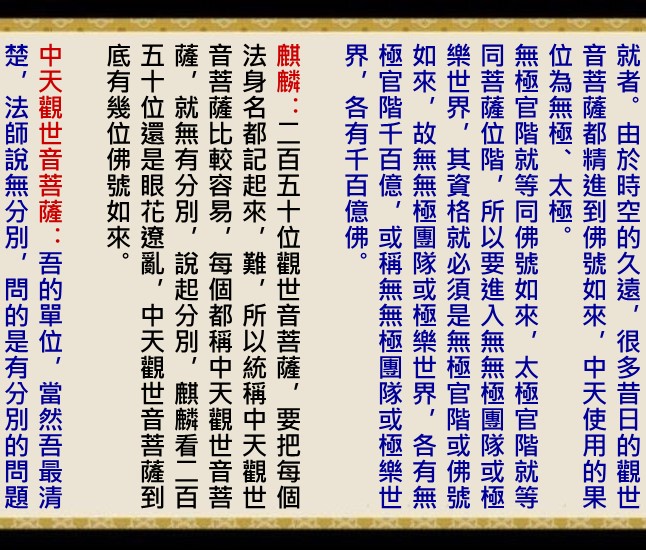 就者。由於時空的久遠，很多昔日的觀世
音菩薩都精進到佛號如來，中天使用的果
位為無極、太極。
無極官階就等同佛號如來，太極官階就等
同菩薩位階，所以要進入無無極團隊或極
樂世界，其資格就必須是無極官階或佛號
如來，故無無極團隊或極樂世界，各有無
極官階千百億，或稱無無極團隊或極樂世
界，各有千百億佛。
麒麟：二百五十位觀世音菩薩，要把每個
法身名都記起來，難，所以統稱中天觀世
音菩薩比較容易，每個都稱中天觀世音菩
薩，就無有分別，說起分別，麒麟看二百
五十位還是眼花遼亂，中天觀世音菩薩到
底有幾位佛號如來。
中天觀世音菩薩：吾的單位，當然吾最清
楚，法師說無分別，問的是有分別的問題